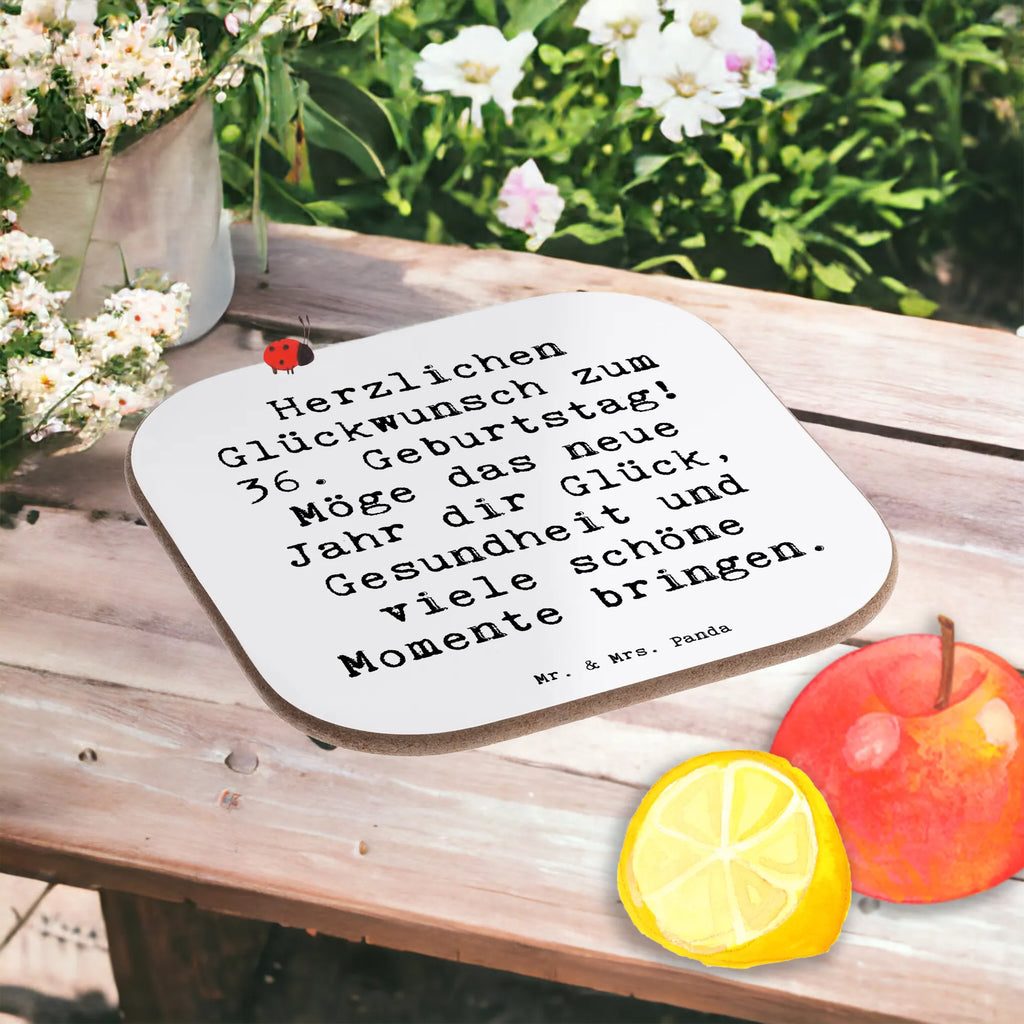 Herzlichen
Glückwunsch zum
36. Geburtstag!
Möge das neue
Jahr dir Glück,
Gesundheit und
viele schöne
Momente bringen.
Mr. & Mrs. Panda